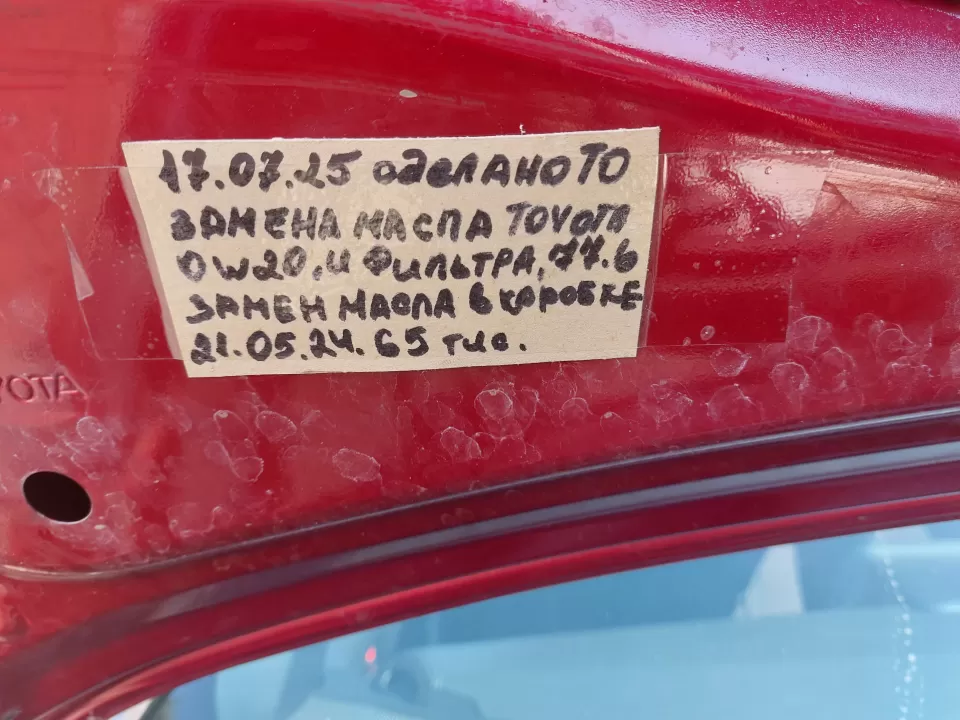 17.07.25 сделано ТО
ЗАМЕНА МАСЛА TOYOTA
0W20, и ФИЛЬТРА, 77.6
ЗАМЕН МАСЛА В КОРОБКЕ
21.05.24. 65 тис.
YOTA